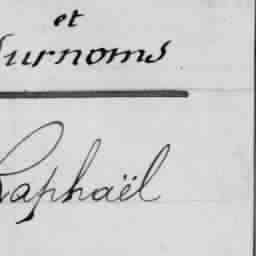 et
Surnoms
Raphaël